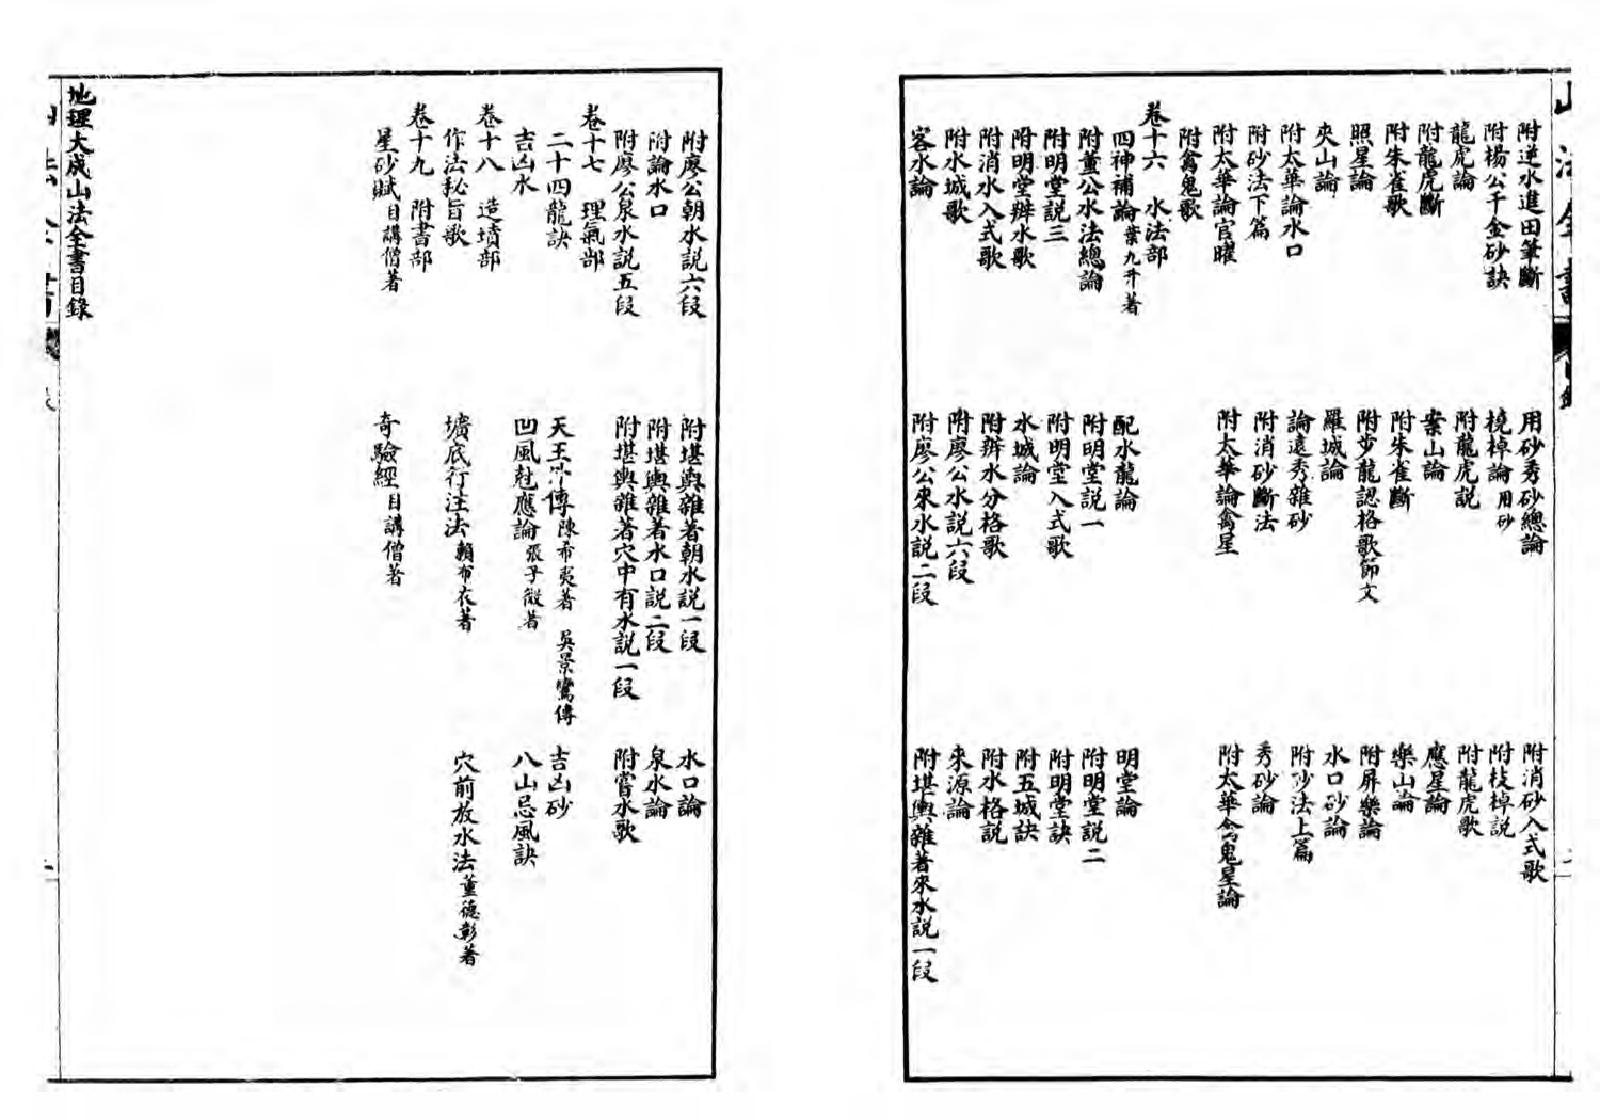 附逆水進田筆斷　用砂秀砂總論　附消砂入式歌
附楊公千金砂訣　橈棹論用砂　附枝棹説
龍虎論　附龍虎説　附龍虎歌
附龍虎斷　案山論　應星論
附朱雀歌　附朱雀斷　樂山論
照星論　附步龍認格歌節文　附屏樂論
夾山論　羅城論　水口砂論
附太華論水口　論遠秀雜砂　附沙法上篇
附砂法下篇　附消砂斷法　秀砂論
附太華論官曜　附太華論禽星　附太華論鬼星論
附禽鬼歌
卷十六　水法部
四神補論葉九升著　配水龍論　明堂論
附董公水法總論　附明堂説一　附明堂説二
附明堂説三　附明堂入式歌　附明堂訣
附明堂辨水歌　水城論　附五城訣
附消水入式歌　附辨水分格歌　附水格説
附水城歌　附廖公水説六段　來源論
客水論　附廖公來水説二段　附堪輿雜著來水説一段
附廖公朝水説六段　附堪輿雜著朝水説一段　水口論
附論水口　附堪輿雜著水口説二段　泉水論
附廖公泉水説五段　附堪輿雜著穴中有水説一段　附嘗水歌
卷十七　理氣部
二十四龍訣　天玉傳陳希夷著　吳景鸞傳　吉凶砂
吉凶水　凹風尅應論張子微著　八山忌風訣
卷十八　造墳部
作法秘旨歌　壙底行注法賴布衣著　穴前放水法董德彰著
卷十九　附書部
星砂賦目講僧著　奇驗經目講僧著
地理大成山法全書目錄